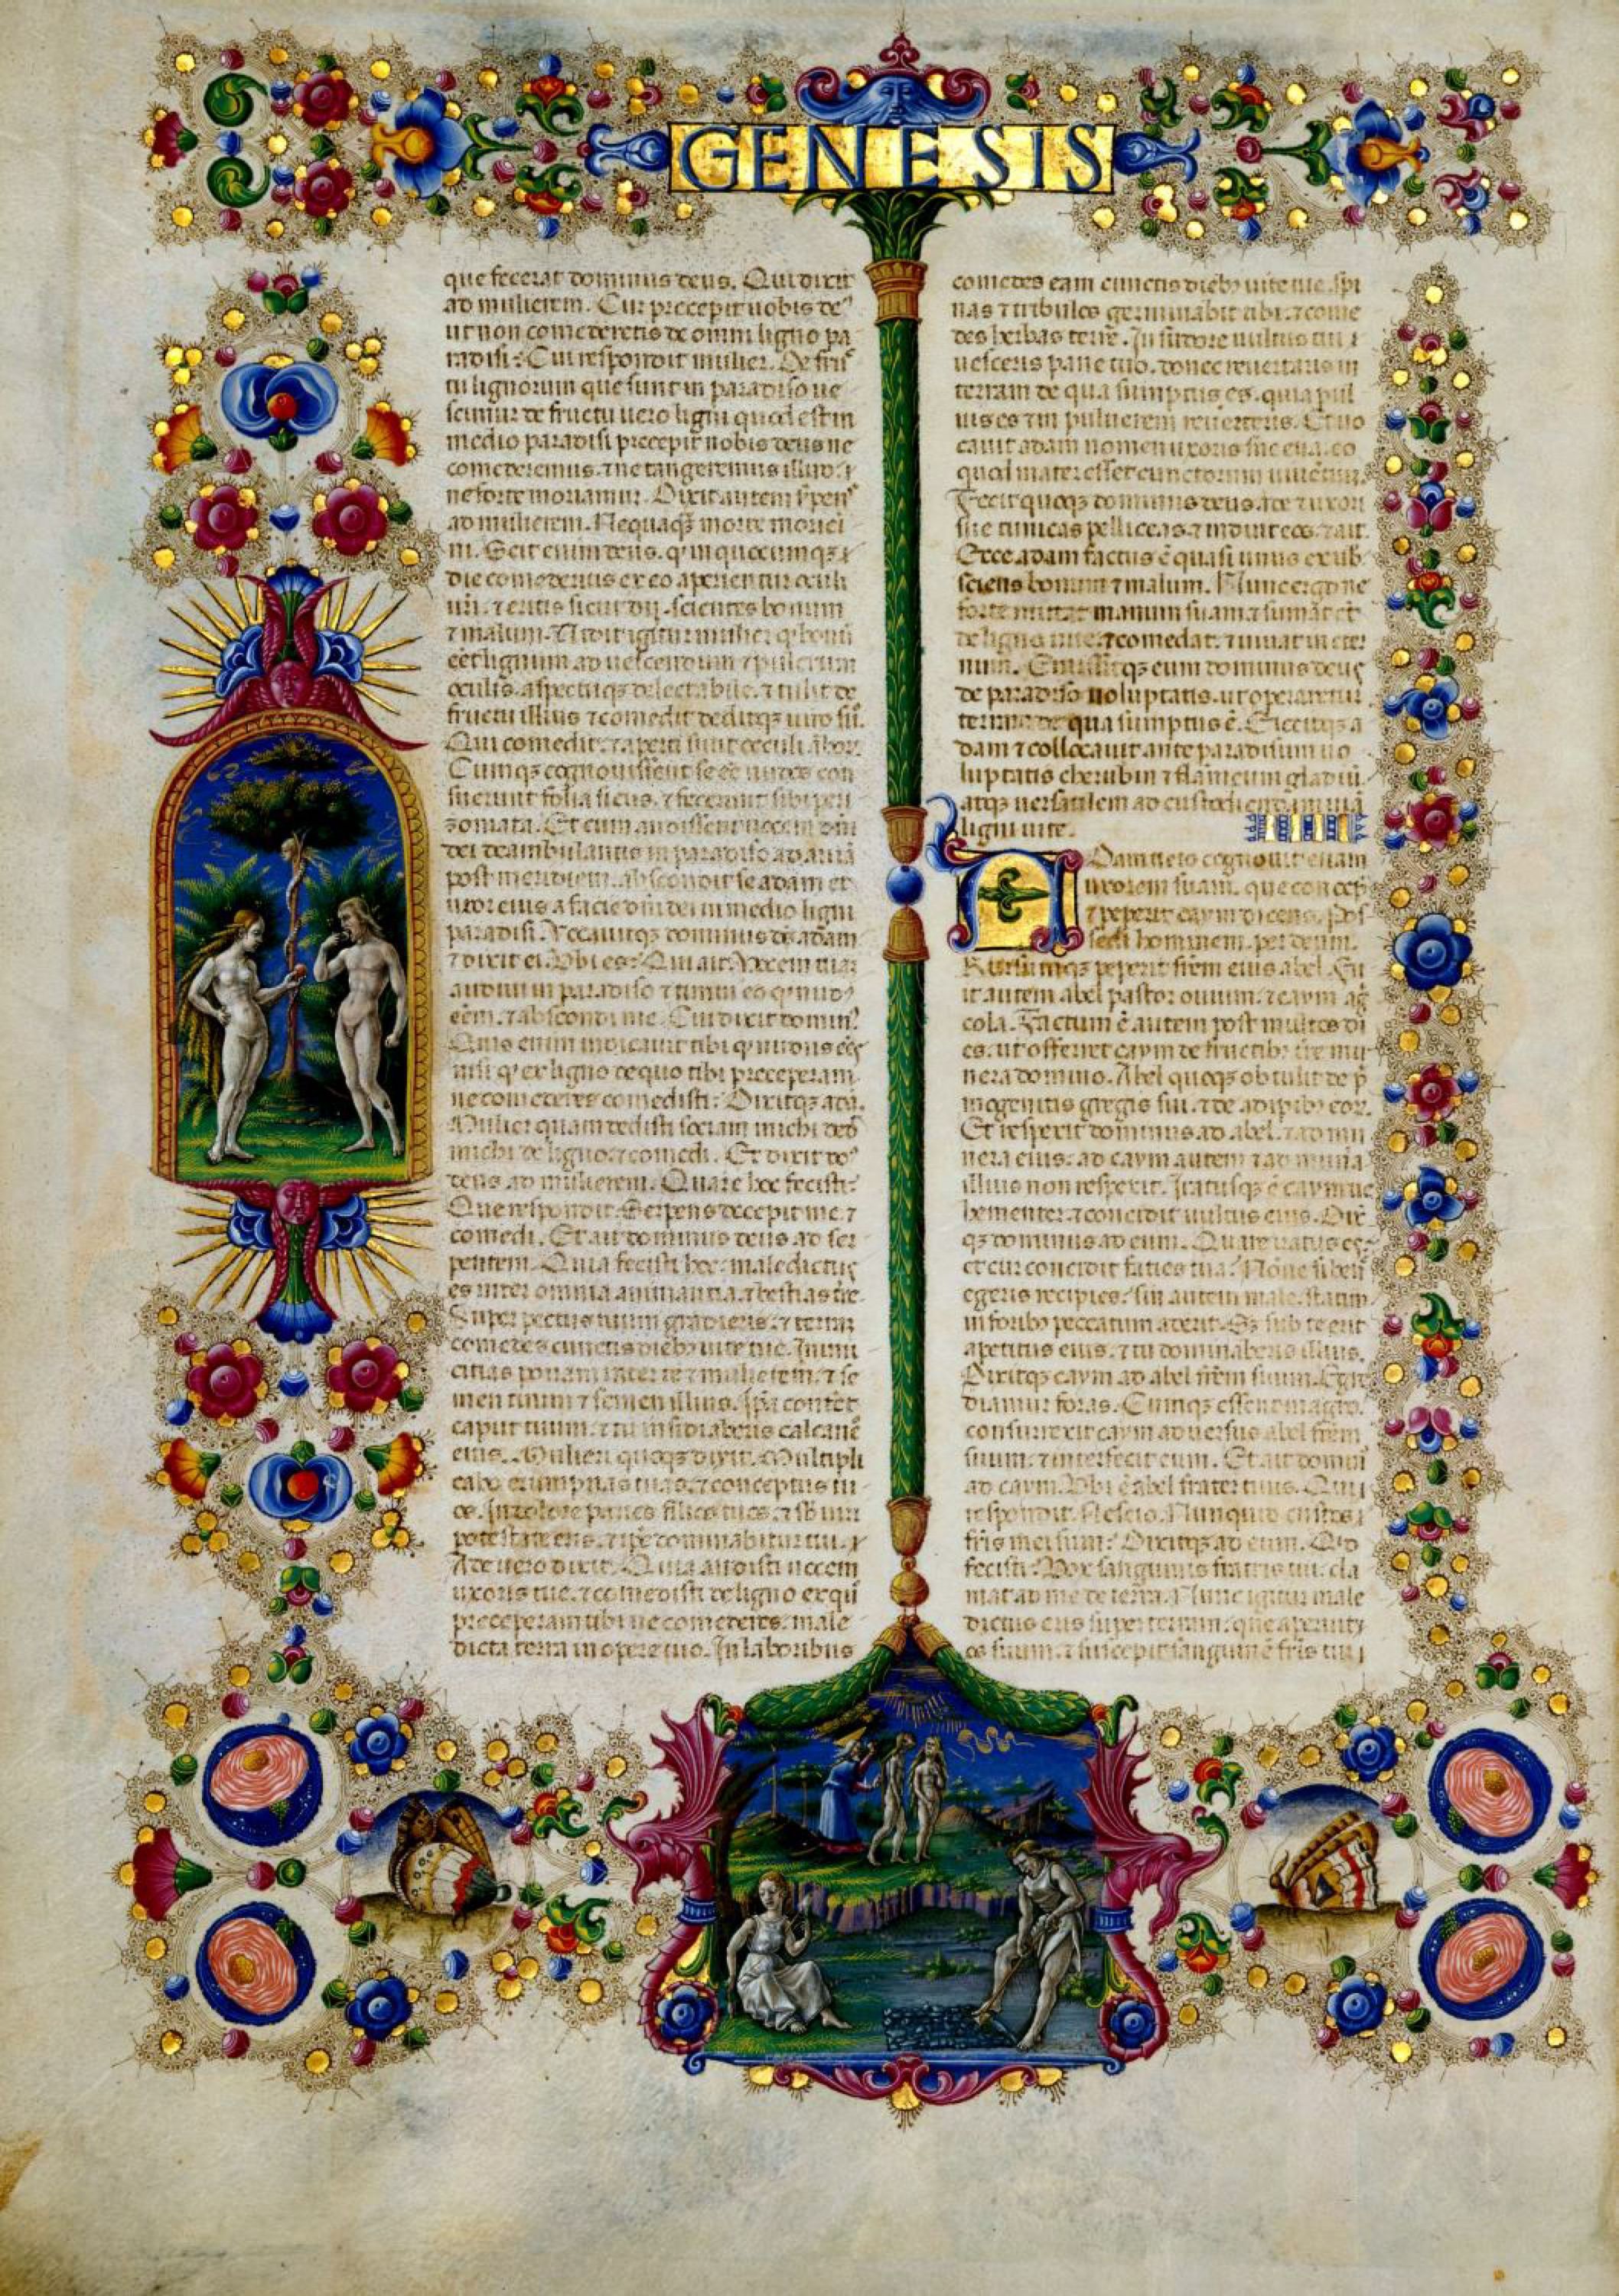 GENESIS
que fecerat dominus deus. Qui dixit
ad mulierem. Cur precepit uobis de⁹
ut non comederetis de omni ligno pa
radisi? Cui respondit mulier. De fru
ctu lignorum que sunt in paradiso ue
scimur de fructu uero ligni quod est in
medio paradisi precepit nobis deus ne
comederemus. ⁊ ne tangeremus illud.
ne forte moriamur. Dixit autem
ad mulierem. Nequaqȝ morte morie
ni. Scit enim deus. q in quocumqȝ
die comederitis ex eo aperientur oculi
uri. ⁊ eritis sicut dij. scientes bonum
⁊ malum. Uidit igitur mulier q bonū
eēt lignum ad uescendum ⁊ pulcrum
oculis. aspectuqȝ delectabile. ⁊ tulit de
fructu illius ⁊ comedit deditqȝ uiro sū.
Qui comedit. ⁊ aperti sunt occuli
Cumqȝ cognouissent se eē nudos con
suerunt folia ficus. ⁊ fecerunt sibi peri
zomata. Et cum audissent uocem dn̄i
dei deambulantis in paradiso ad aurā
post meridiem. abscondit se adam et
uxor eius a facie dn̄i dei in medio ligni
paradisi. Uocauitqȝ dominus dš adam
⁊ dixit ei. Ubi es? Qui ait. Uocem tuaz
audiui in paradiso ⁊ timui eo q nud⁹
eēm. ⁊ abscondi me. Cui dixit domin⁹
Quis enim indicauit tibi q nudus
nisi q ex ligno de quo tibi preceperam
ne comederes comedisti? Dixitqȝ adā.
Mulier quam dedisti sociam michi
michi de ligno. ⁊ comedi. Et dixit do⁹
deus ad mulierem. Quare hoc fecisti?
Que respondit. Serpens decepit me. ⁊
comedi. Et ait dominus deus ad ser
pentem. Quia fecisti hoc. maledictus
es inter omnia animantia. ⁊ bestias
Super pectus tuum gradieris. ⁊ terram
comedes cunctis dieb⁹ uite tue. Inimi
citias ponam inter te ⁊ mulierem. ⁊ se
men tuum ⁊ semen illius. Ipā conter
caput tuum. ⁊ tu insidiaberis calcanē
eius. Mulieri quoqȝ dixit. Multipli
cabo erumpnas tuas. ⁊ conceptus tu
os. In dolore paries filios tuos. ⁊ sb uiri
potestate eris. ⁊ ipe dominabitur tui.
Ade uero dixit. Quia audisti uocem
uxoris tue. ⁊ comedisti de ligno ex quo
preceperam tibi ne comederes. male
dicta terra in opere tuo. In laboribus
comedes eam cunctis dieb⁹ uite tue. Spi
nas ⁊ tribulos germinabit tibi. ⁊ come
des herbas terre. In sudore uultus tui
uesceris pane tuo. donec reuertaris in
terram de qua sumptus es. quia pul
uis es ⁊ in puluerem reuerteris. Et uo
cauit adam nomen uxoris sue eua. eo
quod mater esset cunctorum uiuētiuȝ.
Fecit quoqȝ dominus deus ade ⁊ uxori
sue tunicas pelliceas. ⁊ induit eos. ⁊ ait.
Ecce adam factus ē quasi unus ex nob
sciens bonum ⁊ malum. Nunc ergo ne
forte mittat manum suam ⁊ sumat et
de ligno uite. ⁊ comedat. ⁊ uiuat in eter
num. Emisitqȝ eum dominus deus
de paradiso uoluptatis. ut operaretur
terram de qua sumptus ē. Eiecitqȝ a
dam ⁊ collocauit ante paradisum uo
luptatis cherubin ⁊ flameum gladiū.
atqȝ uersatilem ad custodiendam uiā
ligni uite.
Adam uero cognouit euam
uxorem suam. que concep
⁊ peperit caym dicens. Pos
sedi hominem. per deum.
Rursumqȝ peperit frēm eius abel. Fu
it autem abel pastor ouium. ⁊ caym ag
cola. Factum ē autem post multos di
es. ut offerret caym de fructib⁹ tre mu
nera domino. Abel quoqȝ obtulit de p
mogenitis gregis sui. ⁊ de adipib⁹ eor.
Et respexit dominus ad abel. ⁊ ad mu
nera eius. ad caym autem ⁊ ad munā
illius non respexit. Iratusqȝ ē caym ue
hementer. ⁊ concidit uultus eius. Dix
qȝ dominus ad eum. Quare iratus es?
et cur concidit facies tua? Nōne si benē
egeris recipies. sin autem male. statim
in forib⁹ peccatum aderit. Sȝ sub te erit
apetitus eius. ⁊ tu dominaberis illius.
Dixitqȝ caym ad abel frēm suum. Egre
diamur foras. Cumqȝ essent in agro.
consurrexit caym aduersus abel frēm
suum. ⁊ interfecit eum. Et ait domin⁹
ad caym. Ubi ē abel frater tuus. Qui
respondit. Nescio. Nunquid custos
fris mei sum? Dixitqȝ ad eum. Qid
fecisti? Uox sanguinis fratris tui. cla
mat ad me de terra. Nunc igitur male
dictus eris super terram. que aperuit
os suum. ⁊ suscepit sanguinē fris tui